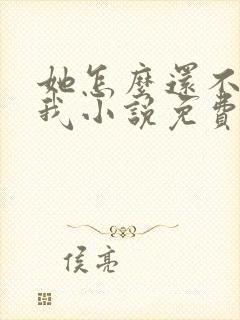 她怎麼還不
我小說免費
侯亮